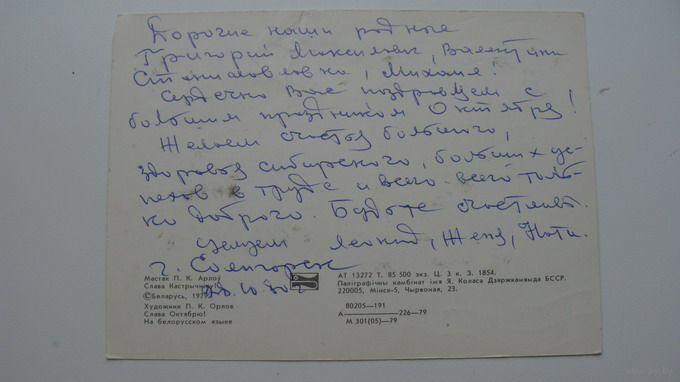 Дорогие наши родные
Григорий Максимович, Валентина
Станиславовна, Михаил!
Сердечно Вас поздравляем с
большим праздником Октября!
Желаем счастья большого,
здоровья сибирского, больших ус-
пехов в труде и всего всего толь-
ко доброго. Будьте счастливы.
Целуем Леонид, Женя, Ната.
г. Солигорск
Мастак П. К. Арлоў
Слава Кастрычніку!
©Беларусь, 1979
Художник П. К. Орлов
Слава Октябрю!
На белорусском языке
АТ 13272 Т. 85 500 экз. Ц. 3 к. З. 1854.
Паліграфічны камбінат імя Я. Коласа Дзяржкамвыда БССР.
220005, Мінск-5, Чырвоная, 23.
80205—191
А————226—79
М 301(05)—79